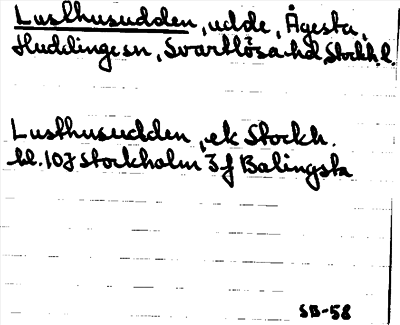 Lusthusudden, udde, Ågesta,
Huddinge sn, Svartlösa hd, Stockh. l.
Lusthusudden, ek Stockh.
bl. 10J Stockholm 3 f Balingsta
SB-58